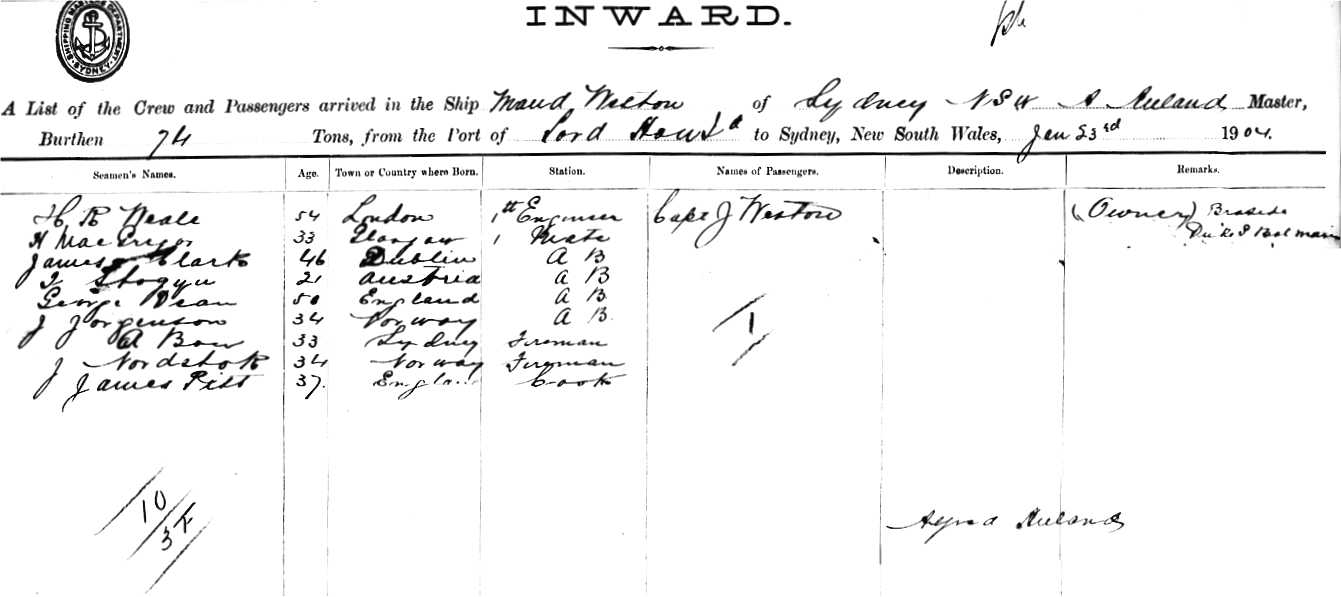 SHIPPING MASTER'S DEPARTMENT. SYDNEY
INWARD.
A List of the Crew and Passengers arrived in the Ship Maud Weston of Sydney N S W A Ireland Master,
Burthen 74 Tons, from the Port of Lord Howe Id to Sydney, New South Wales, Jan 23rd 1904.
Seamen's Names. Age. Town or Country where Born. Station. Names of Passengers. Description. Remarks.
H. R Neale 54 London 1st Engineer Capt J Weston (Owner)
H MacGregor 33 Glasgow 1 Mate
James Clark 46 Dublin A B
21 Austria A B
George Dean 50 England A B
J Jorgenson 34 Norway A B
A Bow 33 Sydney Fireman
J 34 Norway Fireman
James Pitt 37 England Cook
1
10
3F